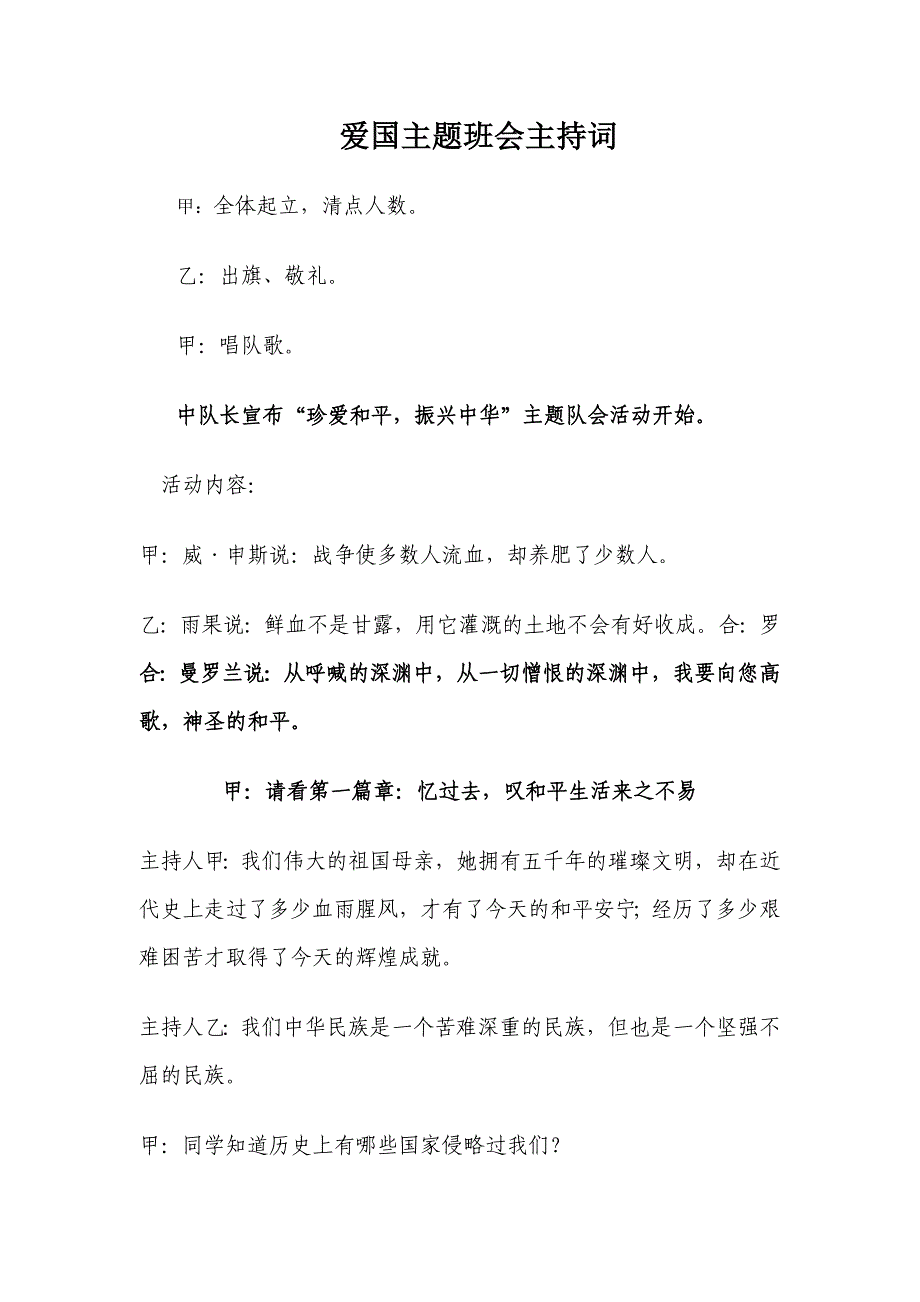 爱国主题班会主持词
甲：全体起立，清点人数。
乙：出旗、敬礼。
甲：唱队歌。
中队长宣布“珍爱和平，振兴中华”主题队会活动开始。
活动内容：
甲：威·申斯说：战争使多数人流血，却养肥了少数人。
乙：雨果说：鲜血不是甘露，用它灌溉的土地不会有好收成。合：罗
合：曼罗兰说：从呼喊的深渊中，从一切憎恨的深渊中，我要向您高
歌，神圣的和平。
甲：请看第一篇章：忆过去，叹和平生活来之不易
主持人甲：我们伟大的祖国母亲，她拥有五千年的璀璨文明，却在近
代史上走过了多少血雨腥风，才有了今天的和平安宁；经历了多少艰
难困苦才取得了今天的辉煌成就。
主持人乙：我们中华民族是一个苦难深重的民族，但也是一个坚强不
屈的民族。
甲：同学知道历史上有哪些国家侵略过我们？